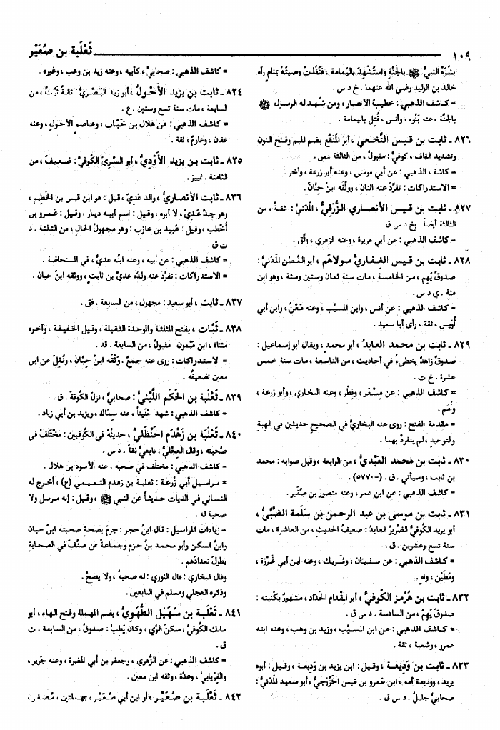 ١٠٩ ثعلبة بن صُعَيْر
بشّره النبيُّ ﷺ بالجنّةِ واستُشهد باليمامة، فنُفّذت وصيتُه بمنام رآه
خالد بن الوليد رضي الله عنهما. خ د س.
* كاشف الذهبي: خطيب الأنصار، ومن شهد له الرسول ﷺ
بالجنة، عنه بنوه، وأنس، قُتل باليمامة.
٨٢٦ ـ ثابت بن قيس النَّخَعي، أبو المُنَقَّع بقسم الميم وفتح النون
وتشديد القاف، كوفي: مقبول، من الثالثة. سي.
* كاشف الذهبي: عن أبي موسى، وعنه أبو زرعة، وآخر.
* الاستدراكات: تفرّد عنه اثنان، ووثّقه ابن حِبّان.
٨٢٧ ـ ثابت بن قيس الأنصاري الزُّرَقيُّ، المَدَنيُّ: ثقةٌ، من
الثالثة أيضاً. بخ د س ق.
* كاشف الذهبي: عن أبي هريرة، وعنه الزهري، وُثّق.
٨٢٨ ـ ثابت بن قيس الغِفاريُّ مولاهم، أبو الغُصْن المَدَنيُّ:
صدوقٌ يَهِم، من الخامسة، مات سنة ثمان وستين ومئة، وهو ابن
مئة. ي د س.
* كاشف الذهبي: عن أنس، وابن المسيّب، وعنه مَعْنٌ، وابن أبي
أُوَيس، ثقة، رأى أبا سعيد.
٨٢٩ ـ ثابت بن محمد العابد، أبو محمد، ويقال أبو إسماعيل:
صدوقٌ زاهدٌ يخطىءُ في أحاديث، من التاسعة، مات سنة خمس
عشرة. خ ت.
* كاشف الذهبي: عن مِسْعَر، وفِطْر، وعنه البخاري، وأبو زرعة،
* مقدمة الفتح: روى عنه البخاريُّ في الصحيح حديثين في الهبة
والتوحيد، لم ينفرد بهما.
٨٣٠ ـ ثابت بن محمد العَبْديُّ، من الرابعة، وقيل صوابه: محمد
بن ثابت، وسيأتي. ق. (=٥٧٧٠).
* كاشف الذهبي: عن ابن عمر، وعنه منصور بن صُقَيْر.
٨٣١ ـ ثابت بن موسى بن عبد الرحمن بن سَلَمة الضَّبِّيُّ،
أبو يزيد الكوفيُّ الضريرُ العابد: ضعيفُ الحديث، من العاشرة، مات
سنة تسع وعشرين. ق.
* كاشف الذهبي: عن سفيان، وشَريك، وعنه ابن أبي غَرَزَة،
ومُطَيَّن، واهٍ.
٨٣٢ ـ ثابت بن هُرْمز الكوفيُّ، أبو المِقدام الحدّاد، مشهور بكنيته:
صدوقٌ يَهِم، من السادسة. د س ق.
* كاشف الذهبي: عن ابن المسيّب، وزيد بن وهب، وعنه ابنه
عمرو، وشعبة، ثقة.
٨٣٣ ـ ثابت بن وَديعة، وقيل: ابن يزيد بن وَديعة، وقيل: أبوه
يزيد، ووديعة أمه، ابن عَمرو بن قيس الخَزْرَجيُّ، أبو سعيد المدنيُّ:
صحابيٌّ جليل. د س ق.
* كاشف الذهبي: صحابيٌّ، كأبيه، وعنه زيد بن وهب، وغيره.
٨٣٤ ـ ثابت بن يزيد الأحول، أبو زيد البَصْريُّ: ثقةٌ ثَبْتٌ، من
السابعة، مات سنة تسع وستين. ع.
* كاشف الذهبي: عن هلال بن خَبّاب، وعاصم الأحول، وعنه
عفان، وعارم، ثقة.
٨٣٥ ـ ثابت بن يزيد الأَوْديُّ، أبو السَّريّ الكوفيُّ: ضعيفٌ، من
الثامنة. تمييز.
٨٣٦ ـ ثابت الأنصاريُّ، والد عَديٍّ، قيل: هو ابن قيس بن الخَطيم،
وهو جدُّ عَديٍّ، لا أبوه، وقيل: اسم أبيه دينار، وقيل: عَمرو بن
أخطب، وقيل: عُبيد بن عازب: وهو مجهول الحال، من الثالثة. د
ت ق.
* كاشف الذهبي: عن أبيه، وعنه ابنه عديٌّ في المستحاضة.
* الاستدراكات: تفرّد عنه ولدُه عديُّ بن ثابت، ووثّقه ابن حِبان.
٨٣٧ ـ ثابت، أبو سعيد: مجهول، من السابعة. فق.
٨٣٨ ـ ثَبّات، بفتح المثلثة والموحدة الثقيلة، وقيل الخفيفة، وآخره
مثناة، ابن ميمون: مقبولٌ، من السابعة. قد.
* الاستدراكات: روى عنه جمعٌ، وثّقه ابنُ حِبّان، ونُقل عن ابن
معين تضعيفُه.
٨٣٩ ـ ثَعْلَبة بن الحَكَم اللَّيْثيُّ: صحابيٌّ، نزل الكوفة. ق.
* كاشف الذهبي: شهد حُنيناً، عنه سِماك، ويزيد بن أبي زياد.
٨٤٠ ـ ثَعْلَبة بن زَهْدَم الحنظليُّ، حديثُه في الكوفيين: مختلفٌ في
صُحبته، وقال العِجْليُّ: تابعيٌّ ثقة. د س.
* كاشف الذهبي: مختلف في صحبته، عنه الأسود بن هلال.
* مراسيل أبي زُرعة: ثعلبة بن زهدم التميمي (خ)، أخرج له
النسائي في الديات حديثاً عن النبي ﷺ، وقيل: إنه مرسل ولا
صحبة له.
* زيادات المراسيل: قال ابن حجر: جزم بصحة صحبته ابنُ حِبان
وابنُ السكن وأبو محمد بنُ حزمٍ وجماعةٌ ممن صنّف في الصحابة
يطولُ تعدادُهم.
وقال البخاري: قال الثوري: له صحبةٌ، ولا يصحُّ.
وذكره العجلي ومسلم في التابعين.
٨٤١ ـ ثَعْلَبة بن سُهَيْل الطُّهَويُّ، بضم المهملة وفتح الهاء، أبو
مالك الكوفيُّ، سكن الرَّيّ، وكان يُطِبّ: صدوقٌ، من السابعة. ت
ق.
* كاشف الذهبي: عن الزهري، وجعفر بن أبي المغيرة، وعنه جرير،
٨٤٢ ـ ثَعْلَبة بن صُعَيْر، أو ابن أبي صُعَيْر، بمهملتين، مُصغّر،